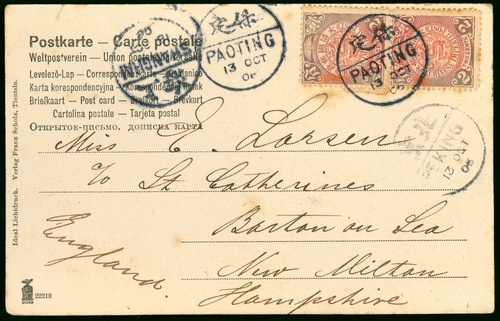 Postkarte — Carte postale
Weltpostverein — Union postale
Levelező-Lap — Correspondenzkarte
Karta korespondencyjna — Korespondenční lístek
Briefkaart — Post card — Brefkort — Brevkort
Cartolina postale — Tarjeta postal
ОТКРЫТОЕ ПИСЬМО. ДОПИСНА КАРТА
保定
PAOTING
13 OCT
保定
PAOTING
13 OCT
SHANGHAI
Miss E. Larsen
c/o St Catherines
Barton on Sea
New Milton
Hampshire
England.
Ideal Lichtdruck. Verlag Franz Scholz, Tientsin.
22219